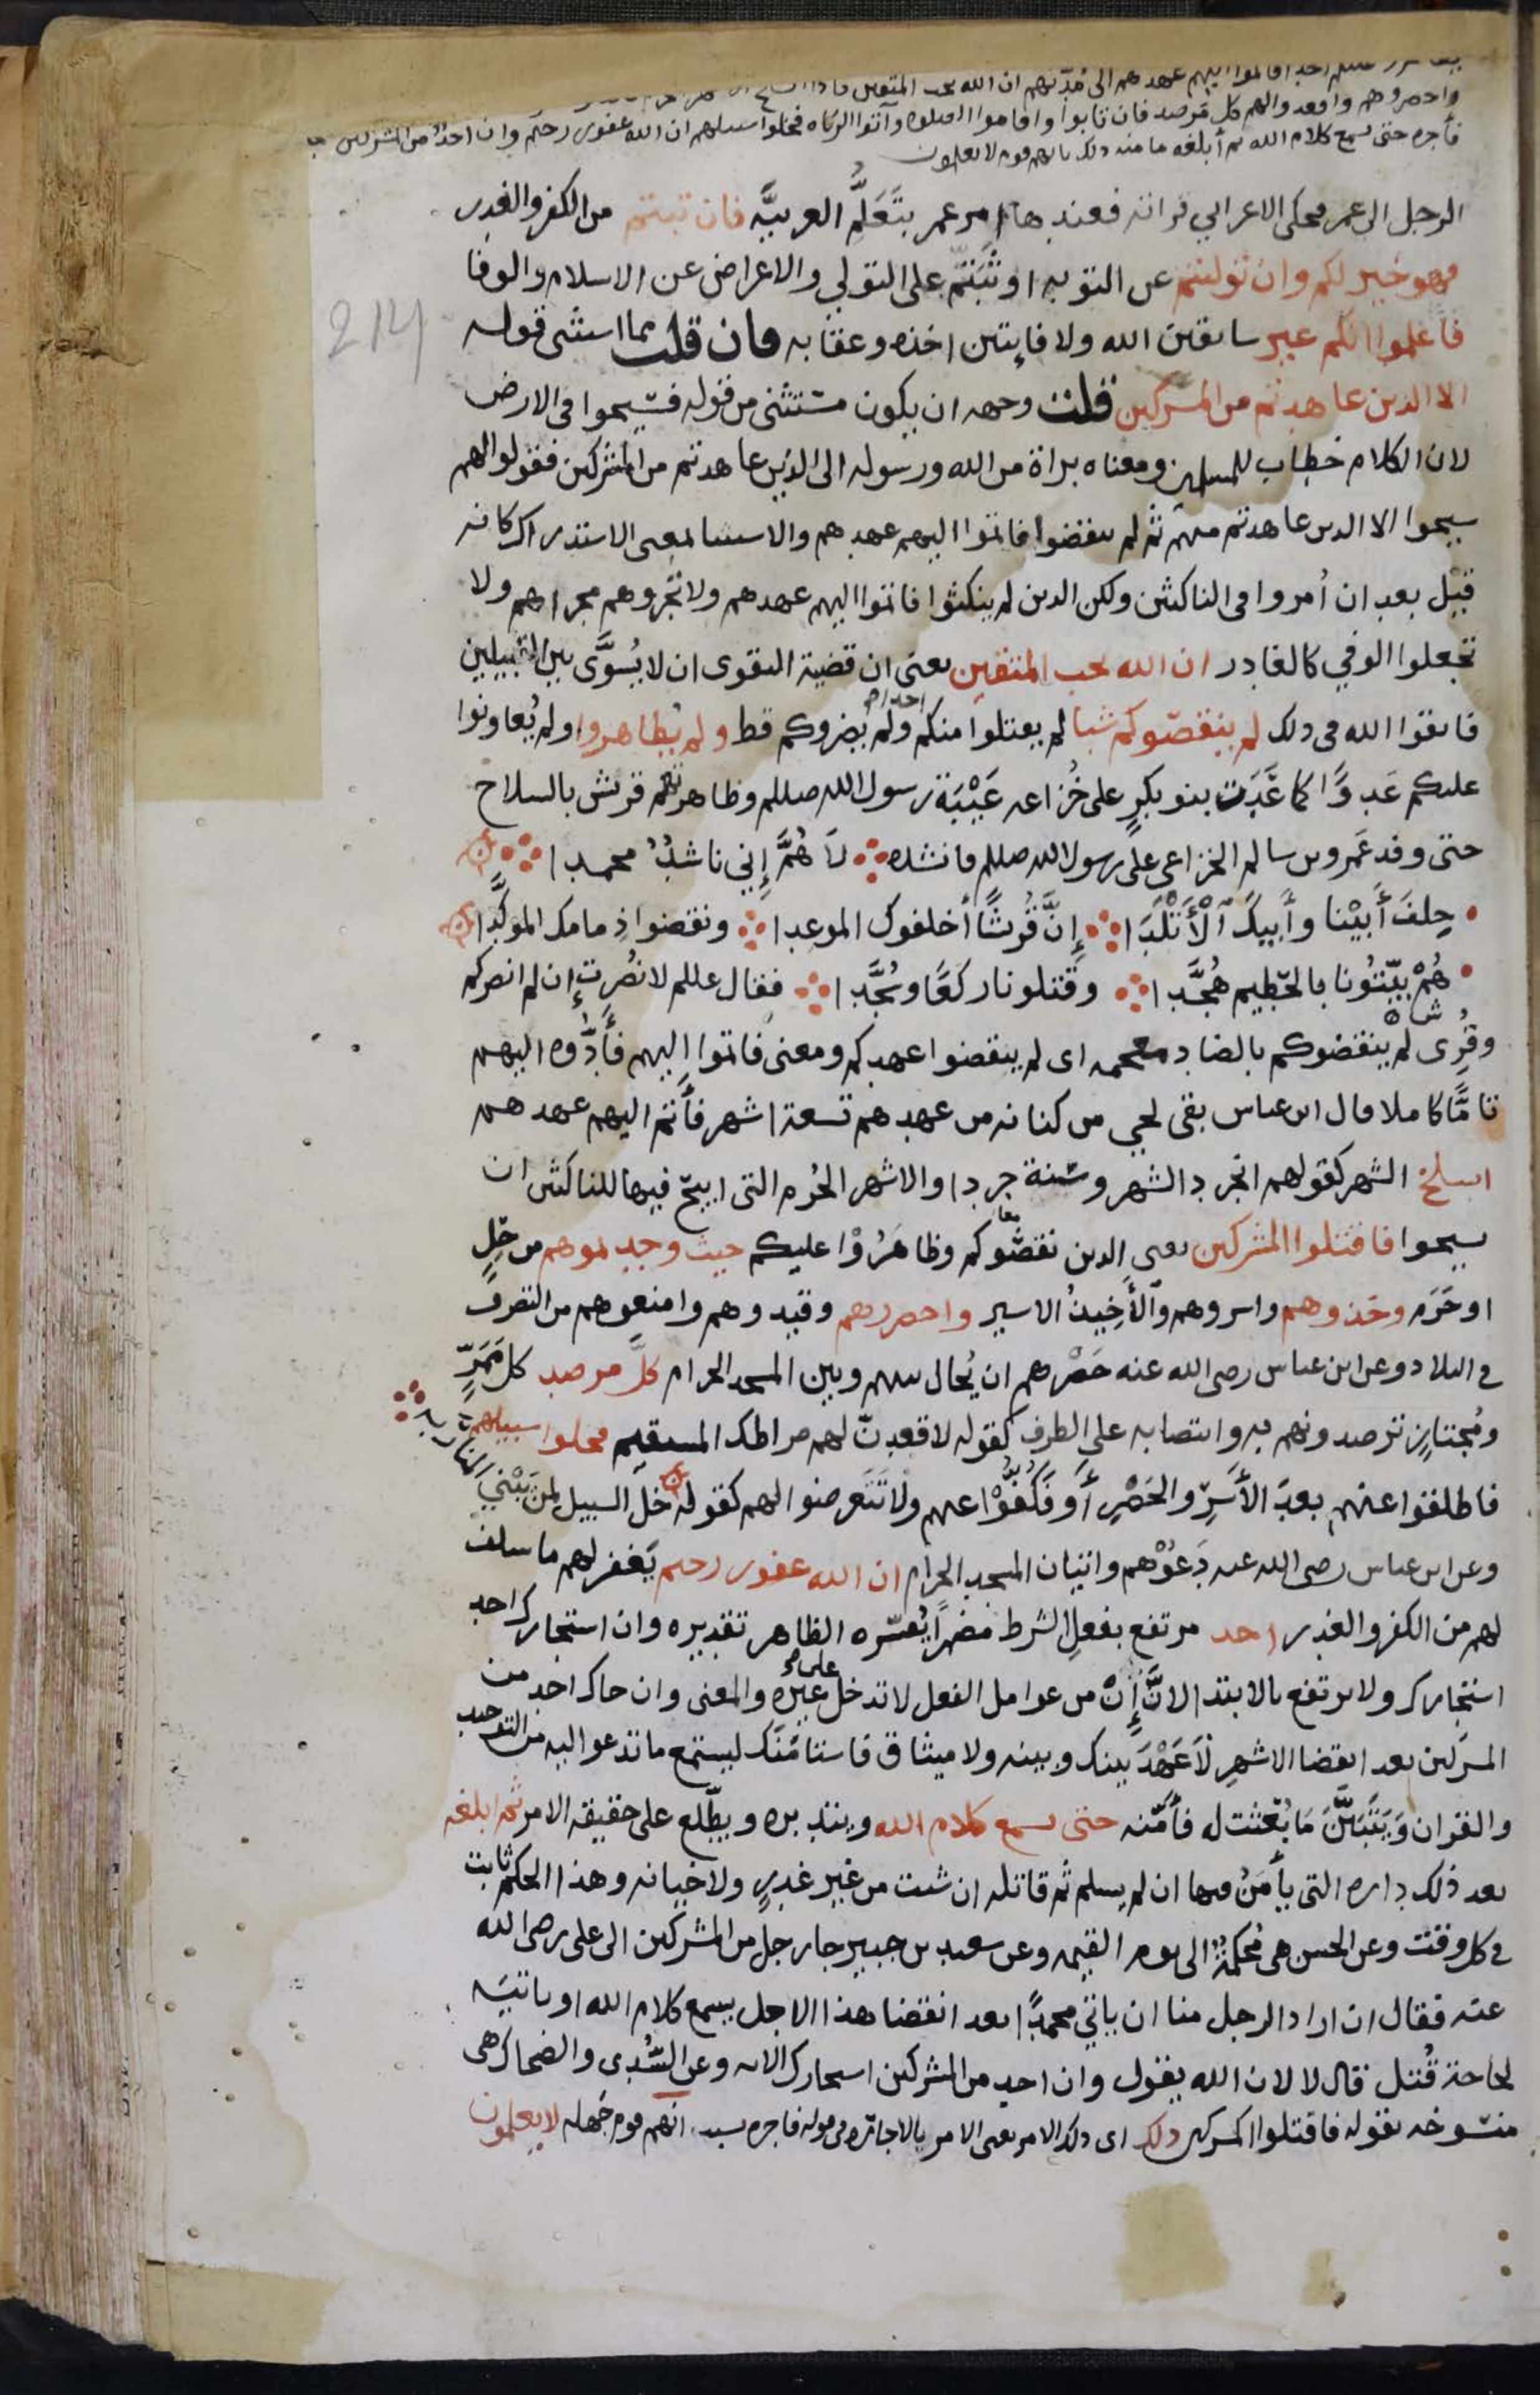 فاتموا اليهم عهدهم الى مدّتهم ان الله يحب المتقين فاذا انسلخ
واحصروهم واقعدوا لهم كل مرصد فان تابوا واقاموا الصلوه وآتوا الزكاه فخلوا سبيلهم ان الله غفور رحيم وان احدٌ من المشركين
فأجره حتى يسمع كلام الله ثم أبلغه مامنه ذلك بانهم قوم لا يعلمون
الرجل الى عمر فحكى الاعرابي قراته فعندها امر عمر بتَعَلُّم العربيَّه فان تبتم من الكفر والغدر
فهو خير لكم وان توليتم عن التوبه او ثَبَتُّم على التولي والاعراض عن الاسلام والوفا
214
فاعلموا انكم غير سابقين الله ولا فايتين اخذه وعقابه فان قلت مما استثنى قوله
الا الذين عاهدتم من المشركين قلت وجهه ان يكون مستثنى من قوله فسيحوا فى الارض
لان الكلام خطاب للمسلمين ومعناه براة من الله ورسوله الى الذين عاهدتم من المشركين فقولوا لهم
سيحوا الا الذين عاهدتم منهم ثم لم ينقضوا فاتموا اليهم عهدهم والاستثنا بمعنى الاستدراك كانه
قيل بعد ان أُمروا فى الناكثين ولكن الذين لم ينكثوا فاتموا اليهم عهدهم ولا تجُروهم مجراهم ولا
تجعلوا الوفي كالغادر ان الله يحب المتقين يعنى ان قضية التقوى ان لا يُسوَّى بين القبيلين
فاتقوا الله فى ذلك لم ينقصّوكم شيا لم يقتلوا منكم احدا ولم يضروكم قط ولم يُظاهروا ولم يُعاونوا
عليكم عَدوًّا كما عَدَت بنو بكرٍ على خُزاعه عَيْبَة رسول الله صللم وظاهرتهم قريش بالسلاح
حتى وفد عَمرو بن سالم الخزاعى على رسول الله صللم فانشده لاَ هُمَّ إِني ناشدٌ محمدا
حِلفَ أَبِيْنا وأَبيكَ ٱلْأَتْلَدَا إِنَّ قُريشًا أَخلفوك الموعدا ونقضوا ذِمامك الموكَّدا
هُمْ بيّتُونا بالحَطيم هُجَّدا وقتلونا ركعًا وسُجَّدا فقال عللم لا نُصرت إن لم انصركم
وقُرى لم ينقضوكم بالضاد معجمه اى لم ينقضوا عهدكم ومعنى فاتموا اليهم فأَدّوه اليهم
تامًّا كاملا قال ابن عباس بقى لحي من كنانه من عهدهم تسعة اشهر فأَتم اليهم عهدهم
انسلخ الشهر كقولهم انجرد الشهر وسَنة جردا والاشهر الحُرم التى ابيح فيها للناكثين ان
يسيحوا فاقتلوا المشركين يعنى الذين نقضُوكم وظاهَرُوْا عليكم حيث وجدتموهم من حِلٍ
او حَرَمٍ وخذوهم واسروهم وٱلأَخِيذُ الاسير واحصروهم وقيدوهم وامنعوهم من التصرف
فى البلاد وعن ابن عباس رضى الله عنه حَصْرهم ان يُحال بينهم وبين المسجد الحرام كلَّ مرصد كل مَمَرٍّ
ومُجتازٍ ترصدونهم به وانتصابه على الظرف كقوله لاقعدنّ لهم صراطك المستقيم فخلوا سبيلهم
فاطلقوا عنهم بعدَ الأَسْرِ والحَصْرِ أَو فَكُفُّوْا عنهم ولا تَتَعرضوا لهم كقوله خلّ السبيل لمن يَبْني المنار به
وعن ابن عباس رضى الله عنه دَعُوْهم واتيان المسجد الحرام ان الله غفور رحيم يَغفر لهم ما سلف
لهم من الكفر والغدر احد مرتفع بفعلِ الشرط مضمرًا يُفسّره الظاهر تقديره وان استجارك احد
استجارك ولا يرتفع بالابتدا لانَّ إِنْ من عوامل الفعل لا تدخل على غيره والمعنى وان جاك احد من
المشركين بعد انقضا الاشهرِ لاَ عَهْدَ بينك وبينه ولا ميثاق فاستامَنَك ليستمع ما تدعوا اليه من التوحيد
والقران وَيَتَبَيَّنَ مَا بُعثت له فأَمّنه حتى يسمع كلام الله ويتدبره ويطّلع على حقيقه الامر ثم ابلغه
بعد ذلك داره التى يأمَنُ فيها ان لم يسلم ثم قاتله ان شئت من غير غدرٍ ولا خيانه وهذا الحكم ثابت
فى كل وقت وعن الحسن هى مُحكمة الى يوم القيمه وعن سعيد بن جبير جا رجل من المشركين الى على رضى الله
عنه فقال ان اراد الرجل منا ان ياتي محمدًا بعد انقضا هذا الاجل يسمع كلام الله او ياتيَه
لحاجة قُتل قال لا لان الله يقول وان احد من المشركين استجارك الايه وعن السُّدى والضحاك هى
منسوخه بقوله فاقتلوا المشركين ذلك اى ذلك الامر يعنى الامر بالاجازه فى قوله فاجره بسبب انهم قوم جَهله لا يعلمون